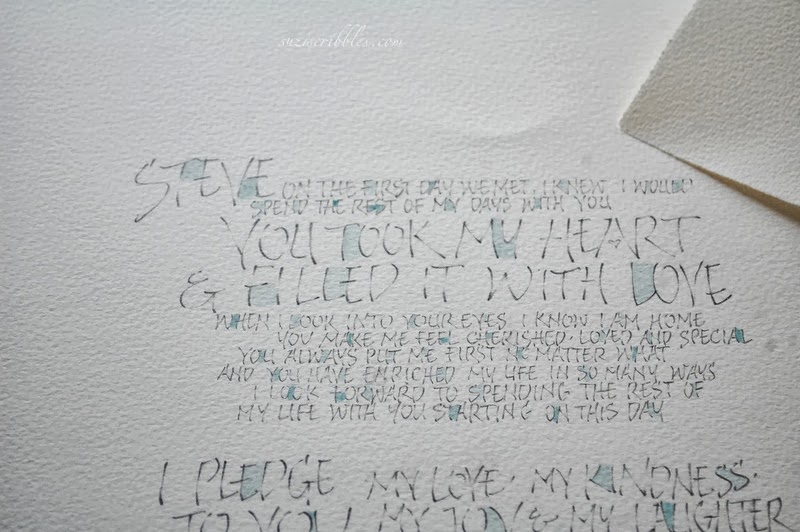 suziscribbles.com
STEVE ON THE FIRST DAY WE MET, I KNEW I WOULD
SPEND THE REST OF MY DAYS WITH YOU
YOU TOOK MY HEART
& FILLED IT WITH LOVE
WHEN I LOOK INTO YOUR EYES I KNOW I AM HOME
YOU MAKE ME FEEL CHERISHED · LOVED AND SPECIAL
YOU ALWAYS PUT ME FIRST NO MATTER WHAT
AND YOU HAVE ENRICHED MY LIFE IN SO MANY WAYS
I LOOK FORWARD TO SPENDING THE REST OF
MY LIFE WITH YOU STARTING ON THIS DAY
I PLEDGE MY LOVE · MY KINDNESS ·
TO YOU / MY JOY & MY LAUGHTER